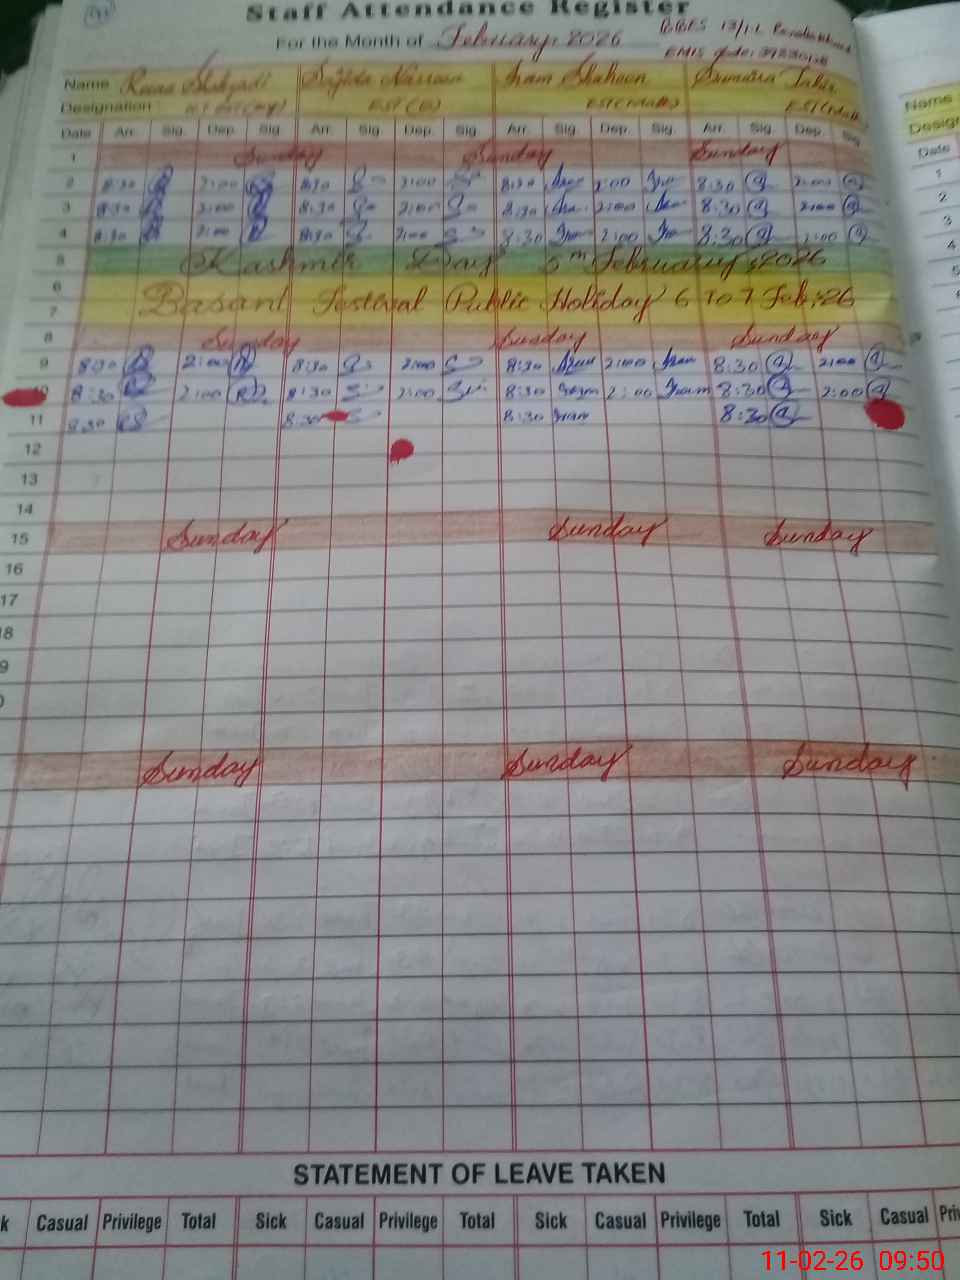 Staff Attendance Register
For the Month of February, 2026
13/1.L
EMIS Code:
Name Shahzadi Sajida Nasreen Iram Shaheen Sumaira Tahir
Designation : EST EST(Math)
Date Arr. Sig. Dep. Sig Arr. Sig Dep. Sig. Arr. Sig. Dep. Sig. Arr. Sig. Dep. Sig.
1 Sunday Sunday Sunday
2 8:30 2:00 8:30 2:00 8:30 Iram 2:00 Iram 8:30 2:00
3 8:30 2:00 8:30 2:00 8:30 Iram 2:00 Iram 8:30 2:00
4 8:30 2:00 8:30 2:00 8:30 Iram 2:00 Iram 8:30 2:00
5 Kashmir Day 5th February, 2026
6
Basant Festival Public Holiday 6 To 7 Feb:26
7
8 Sunday Sunday Sunday
9 8:30 2:00 8:30 2:00 8:30 Iram 2:00 Iram 8:30 2:00
10 8:30 2:00 8:30 2:00 8:30 Iram 2:00 Iram 8:30 2:00
11 8:30 8:30 8:30 Iram 8:30
12
13
14
15 Sunday Sunday Sunday
16
17
18
9
Sunday Sunday Sunday
STATEMENT OF LEAVE TAKEN
k Casual Privilege Total Sick Casual Privilege Total Sick Casual Privilege Total Sick Casual Pri
Name
Desig
Date
1
2
3
4
5
6
7
11-02-26 09:50